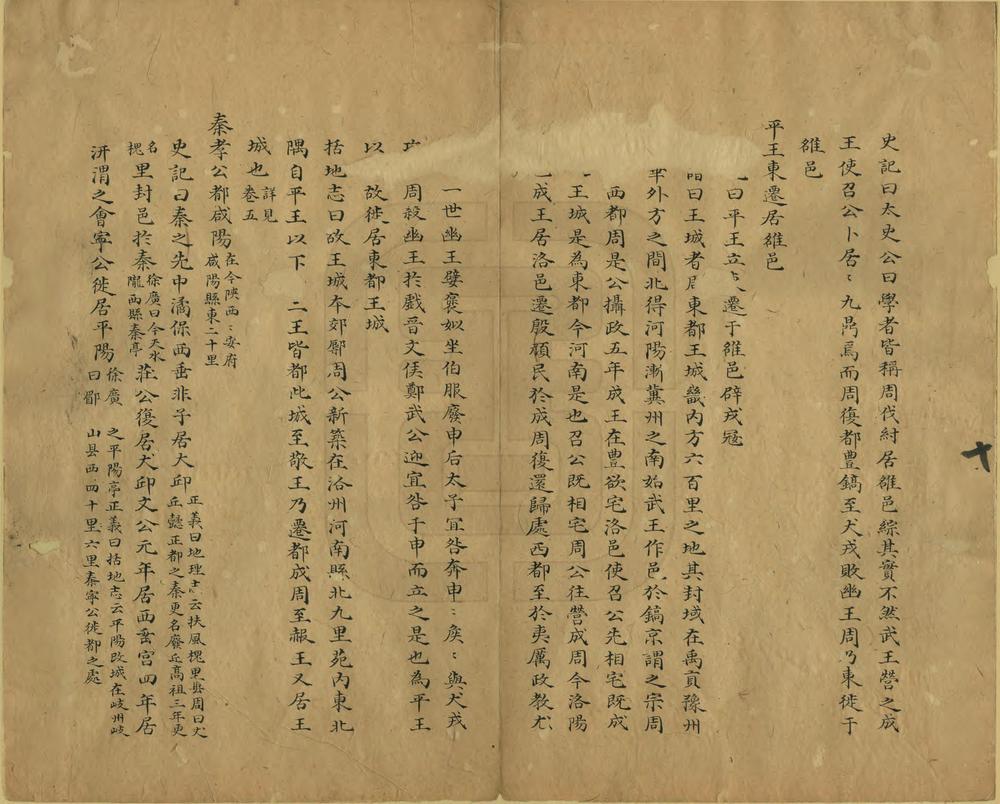 史記曰太史公曰學者皆稱周伐紂居雒邑綜其實不然武王營之成
王使召公卜居〻九鼎焉而周復都豊鎬至犬戎敗幽王周乃東徙于
雒邑
平王東遷居雒邑
曰平王立遷于雒邑辟戎冦
曰王城者周東都王城畿内方六百里之地其封域在禹貢豫州
外方之間北得河陽漸冀州之南始武王作邑於鎬京謂之宗周
西都周是公攝政五年成王在豊欲宅洛邑使召公先相宅既成
王城是為東都今河南是也召公既相宅周公往營成周今洛陽
成王居洛邑遷殷頑民於成周復還歸處西都至於夷厲政教尤
一世幽王嬖褒姒生伯服廢申后太子宜咎奔申〻侯〻與犬戎
周殺幽王於戲晉文侯鄭武公迎宜咎于申而立之是也為平王
以故徙居東都王城
括地志曰故王城本郊鄏周公新築在洽州河南縣北九里苑内東北
隅自平王以下二王皆都此城至敬王乃遷都成周至赧王又居王
城也詳見卷五
秦孝公都咸陽在今陝西〻安府咸陽縣東二十里
史記曰秦之先中潏保西垂非子居犬邱正義曰地理志云扶風槐里縣周曰犬丘懿王都之秦更名廢丘高祖三年更
名槐里封邑於秦徐廣曰今天水隴西縣秦亭莊公復居犬邱文公元年居西垂宫四年居
汧渭之會寧公徙居平陽徐廣曰郿之平陽亭正義曰括地志云平陽故城在岐州岐山县西四十里六里秦寧公徙都之處
十